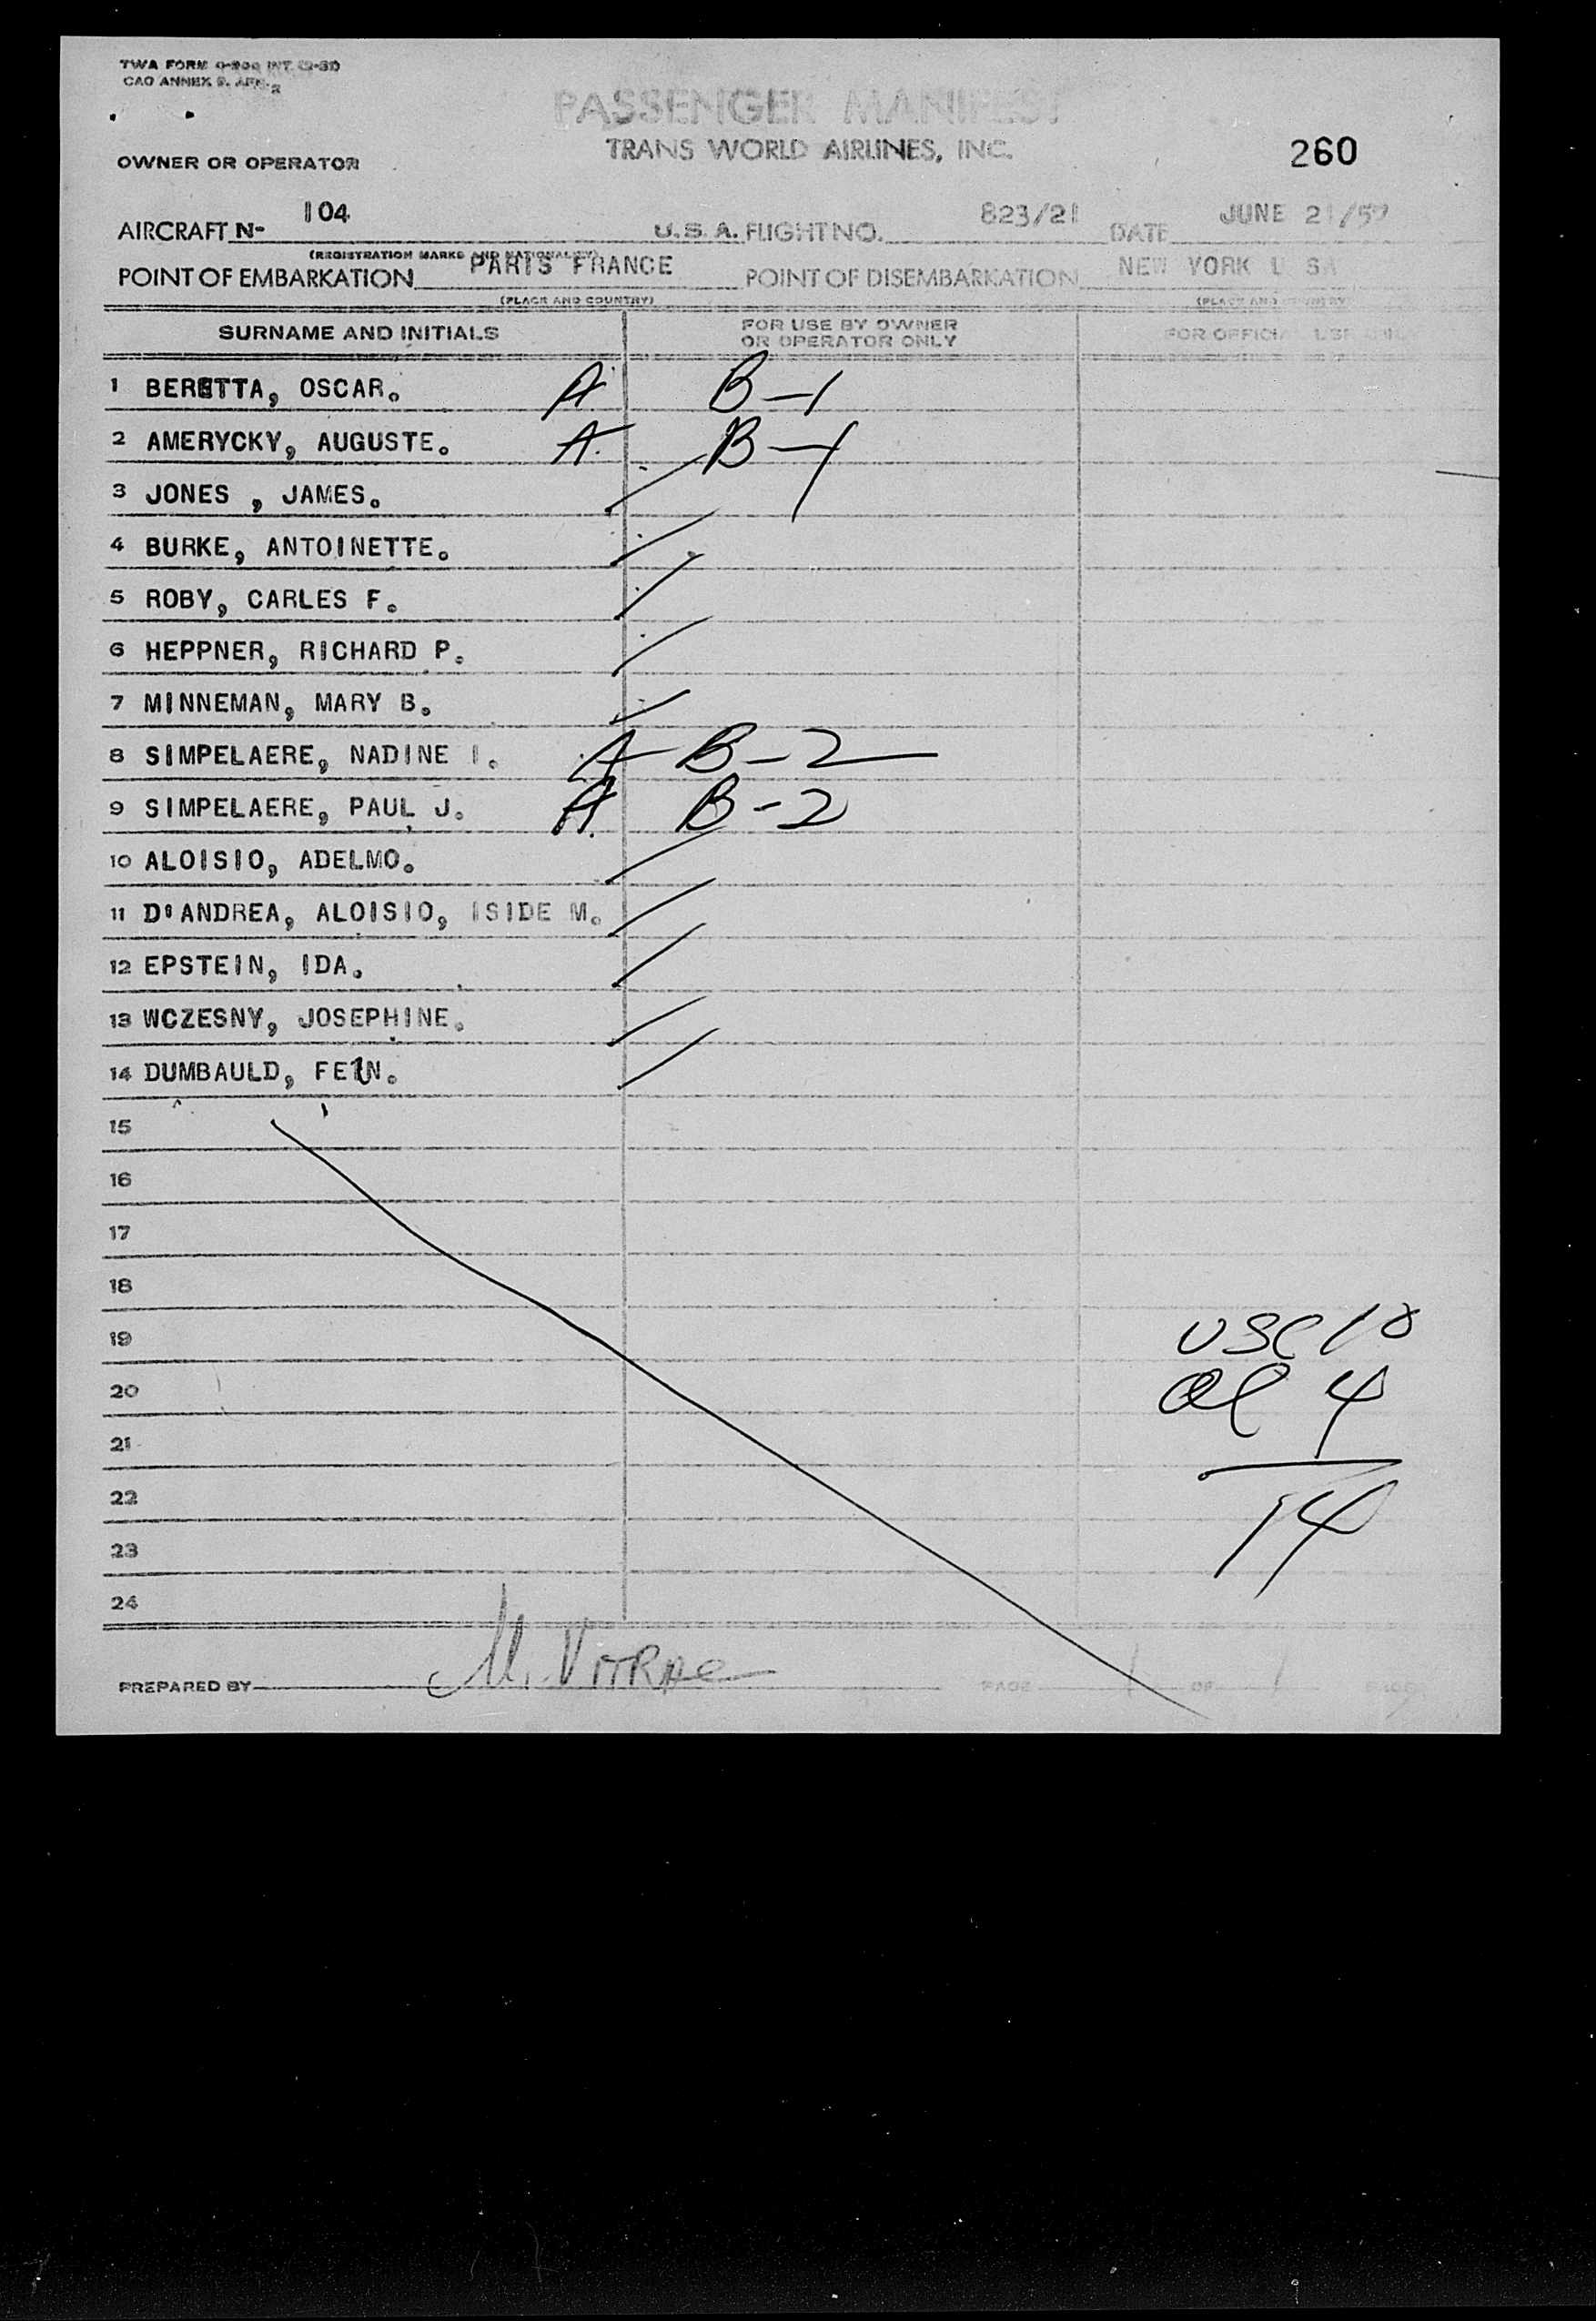 TWA FORM
CAO ANNEX 9.
PASSENGER MANIFEST
TRANS WORLD AIRLINES, INC.
260
OWNER OR OPERATOR
AIRCRAFT N- 104 U.S.A. FLIGHT NO. 823/21 DATE JUNE 21/57
(REGISTRATION MARKS AND NATIONALITY)
POINT OF EMBARKATION PARIS FRANCE POINT OF DISEMBARKATION NEW YORK U SA
(PLACE AND COUNTRY) (PLACE AND COUNTRY)
SURNAME AND INITIALS FOR USE BY OWNER OR OPERATOR ONLY FOR OFFICIAL USE ONLY
1 BERETTA, OSCAR. A B-1
2 AMERYCKY, AUGUSTE. A B-1
3 JONES , JAMES.
4 BURKE, ANTOINETTE.
5 ROBY, CARLES F.
6 HEPPNER, RICHARD P.
7 MINNEMAN, MARY B.
8 SIMPELAERE, NADINE I. A B-2
9 SIMPELAERE, PAUL J. A B-2
10 ALOISIO, ADELMO.
11 D'ANDREA, ALOISIO, ISIDE M.
12 EPSTEIN, IDA.
13 WCZESNY, JOSEPHINE.
14 DUMBAULD, FEIN.
15
16
17
18
19 USC 10
20 al 4
21
22 14
23
24
PREPARED BY M. VITRAC PAGE 1 OF 1 PAGES